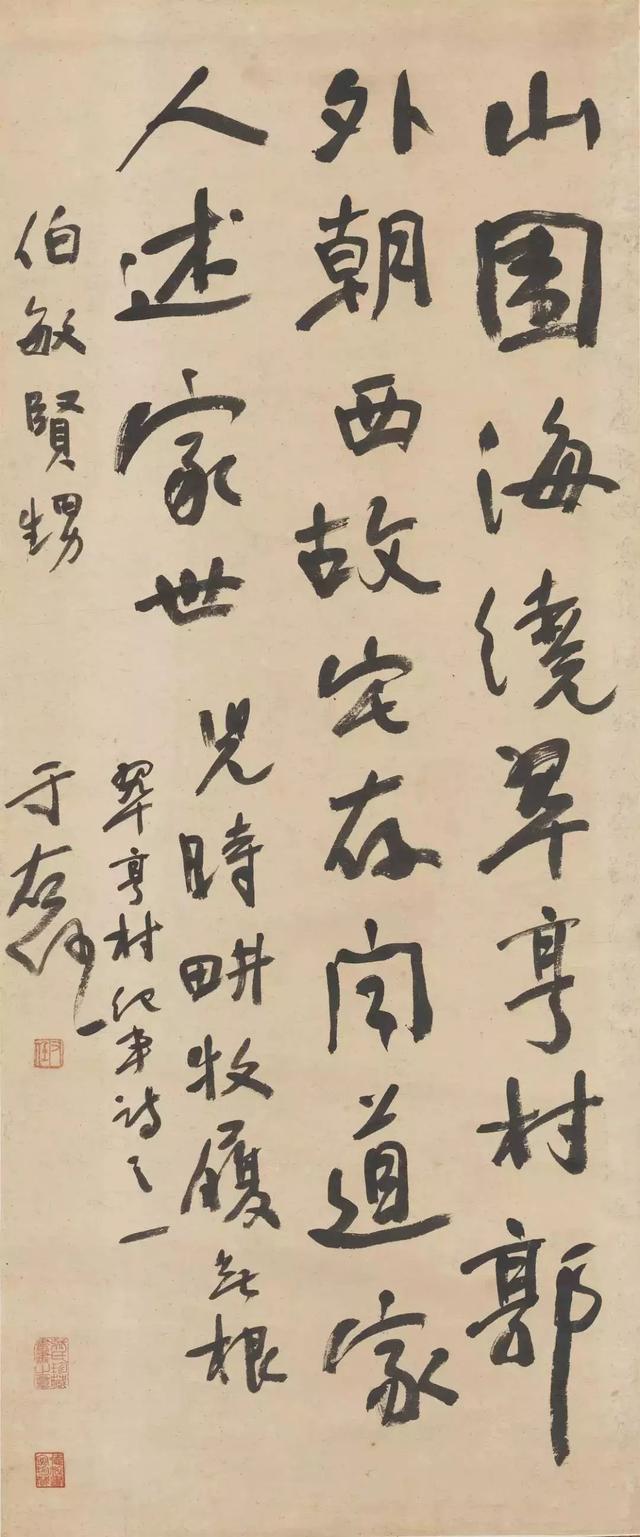 山圍海繞翠亨村郭
外朝西故宅存聞道家
人述家世
兒時畊牧履無根
翠亨村紀事詩之一
伯敏賢甥
于右任
右任